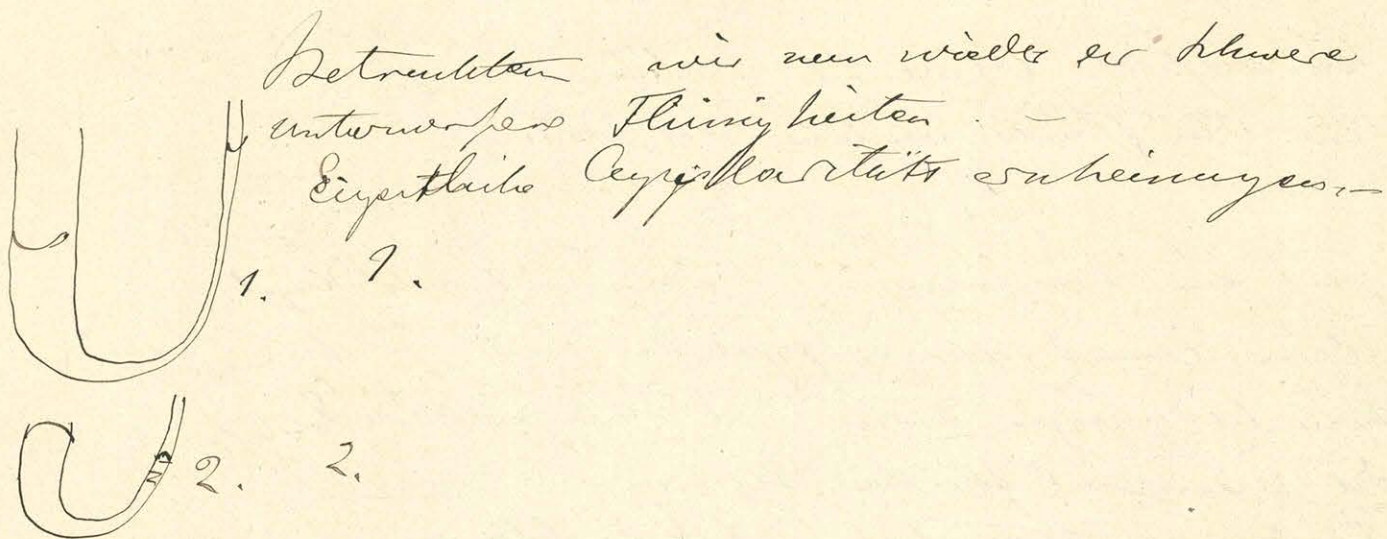 Betrachten wir nun wieder der Schwere
unterworfene Flüssigkeiten. –
Eigentliche Capillaritätserscheinungen. –
1. 1.
2. 2.